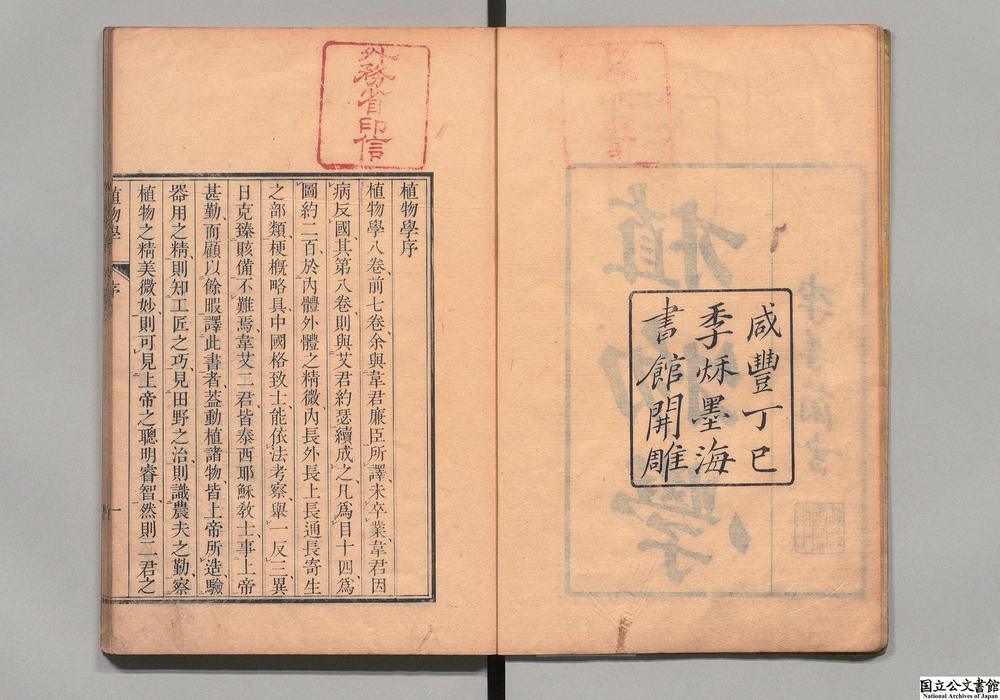 咸豐丁巳
季秌墨海
書館開雕
外務省印信
植物學序
植物學八卷、前七卷、余與韋君廉臣所譯、未卒業、韋君因
病反國、其第八卷、則與艾君約瑟續成之、凡爲目十四、爲
圖約二百、於內體外體之精微、內長外長上長通長寄生
之部類、梗概略具、中國格致士、能依法考察、舉一反三、異
日克臻賅備不難焉、韋艾二君皆泰西耶穌敎士、事上帝
甚勤、而顧以餘暇譯此書者、葢動植諸物、皆上帝所造、驗
器用之精、則知工匠之巧、見田野之治、則識農夫之勤、察
植物之精美微妙、則可見上帝之聰明睿智、然則二君之
植物學 序 一
国立公文書館
National Archives of Japan